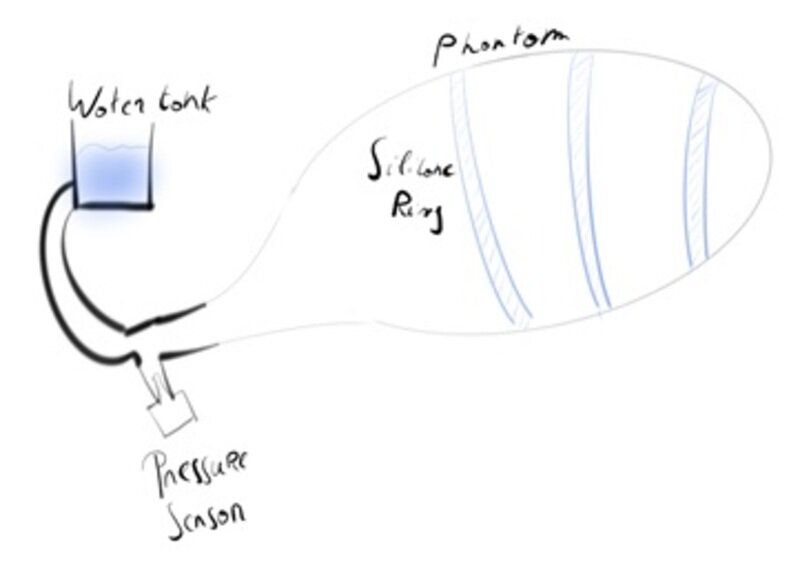 Phantom
Water tank
Silicone
Ring
Pressure
Senson